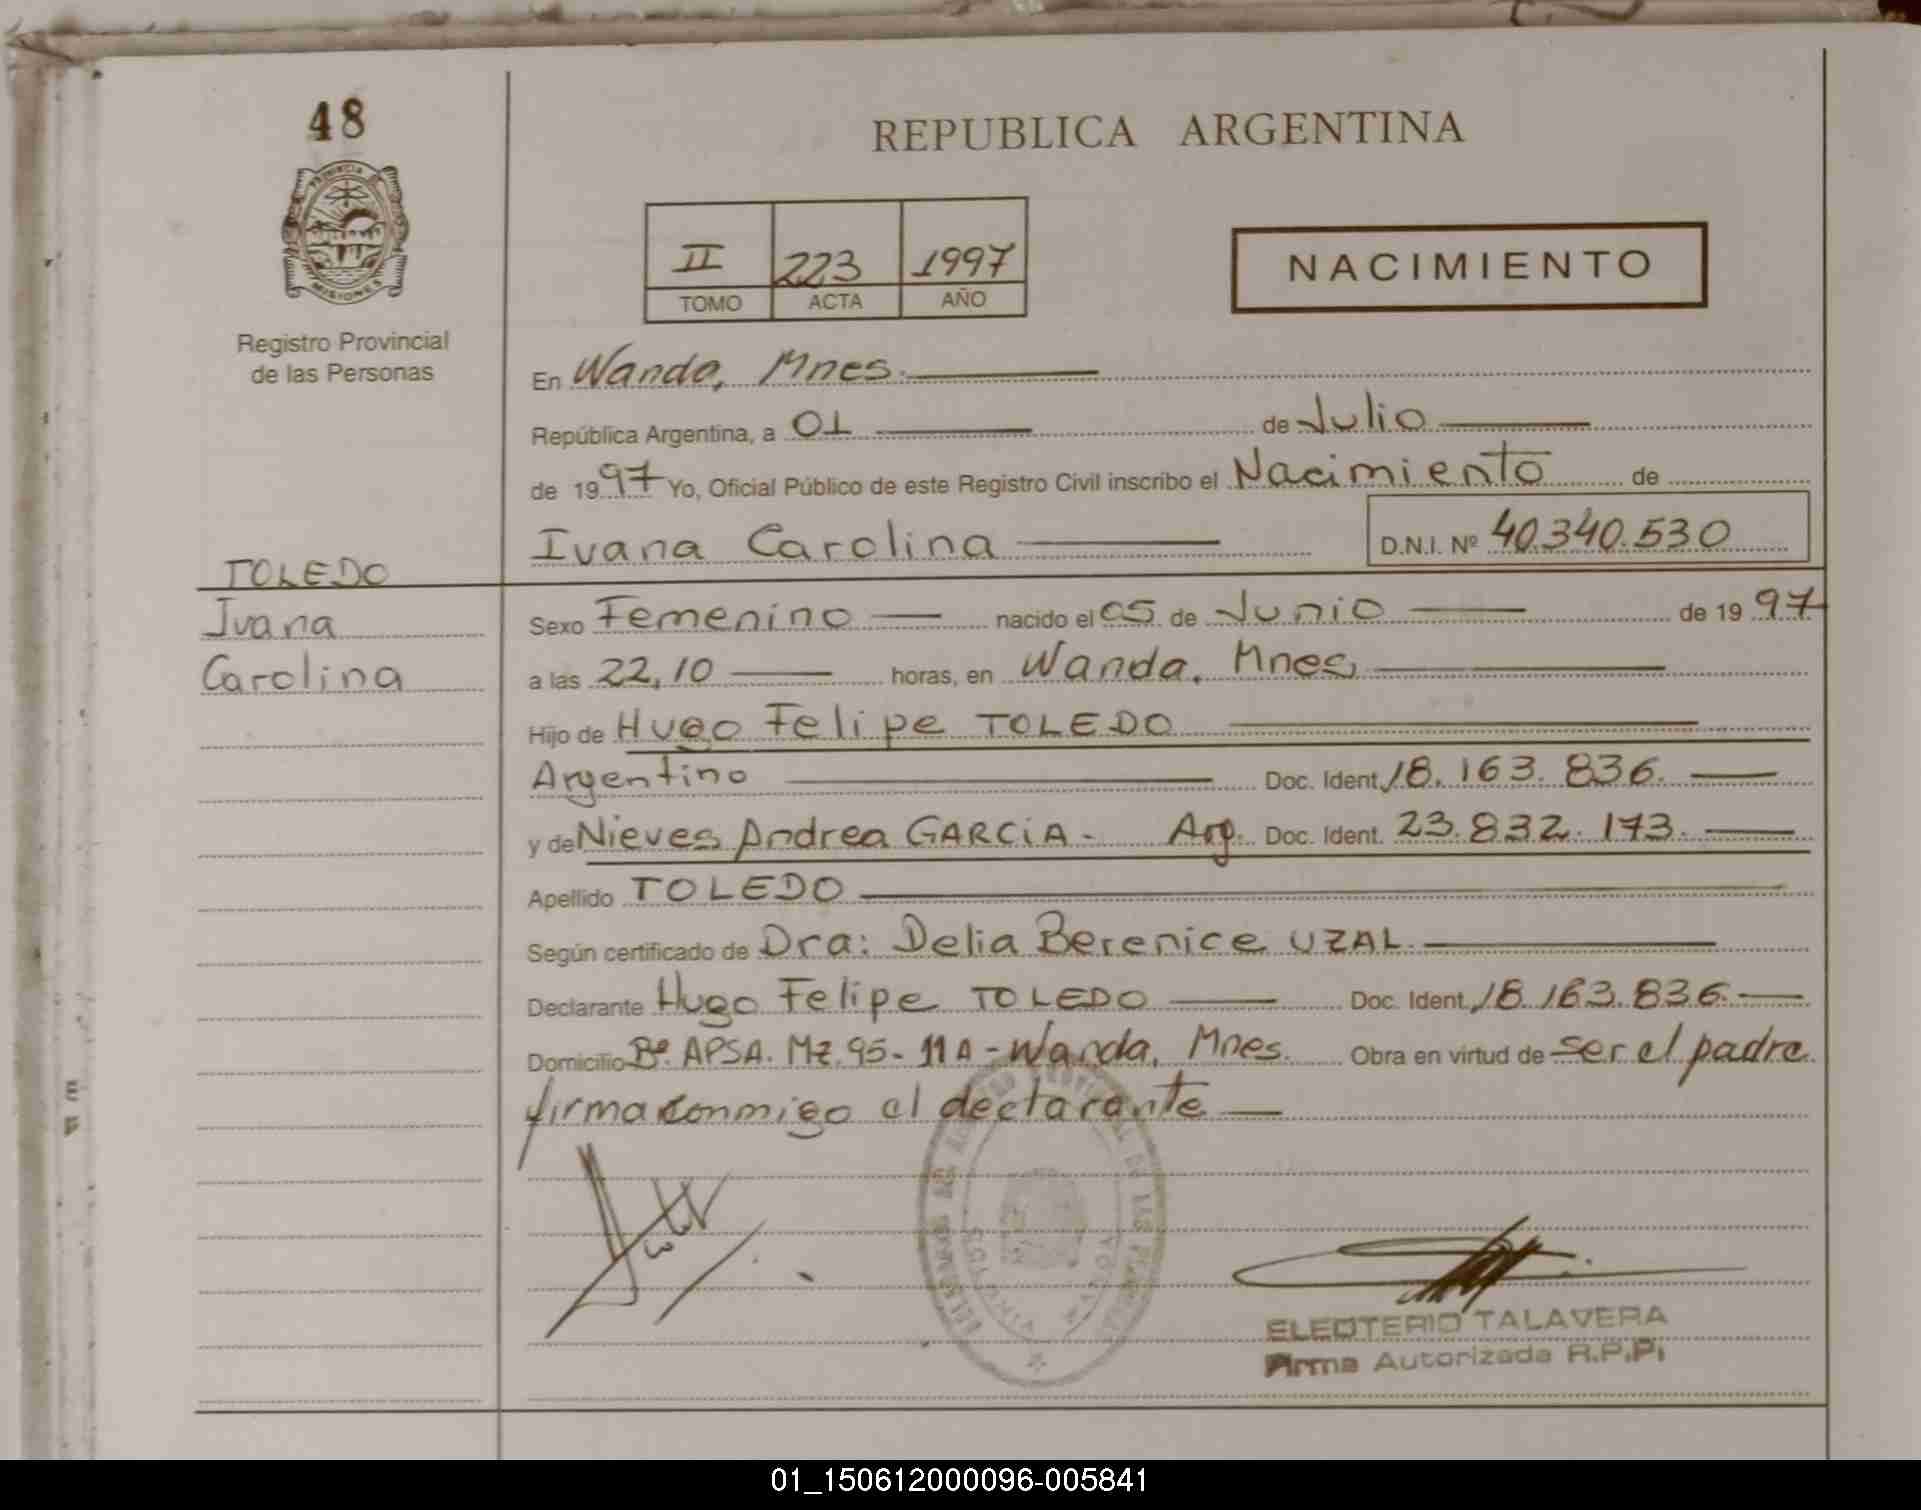 48
PROVINCIA DE
MISIONES
Registro Provincial
de las Personas
TOLEDO
Ivana
Carolina
REPUBLICA ARGENTINA
II 223 1997
TOMO ACTA AÑO
NACIMIENTO
En Wanda, Mnes.
República Argentina, a 01 de Julio
de 1997 Yo, Oficial Público de este Registro Civil inscribo el Nacimiento de
Ivana Carolina D.N.I. Nº 40.340.530
Sexo Femenino nacido el 05 de Junio de 1997
a las 22,10 horas, en Wanda, Mnes
Hijo de Hugo Felipe TOLEDO
Argentino Doc. Ident. 18.163.836.
y de Nieves Andrea GARCIA - Arg. Doc. Ident. 23.832.173.
Apellido TOLEDO
Según certificado de Dra: Delia Berenice UZAL.
Declarante Hugo Felipe TOLEDO Doc. Ident. 18.163.836.
Domicilio Bº. APSA. Mz. 95 - 11A - Wanda, Mnes. Obra en virtud de ser el padre
firma conmigo el declarante
ELEOTERIO TALAVERA
Firma Autorizada R.P.P.
01_150612000096-005841